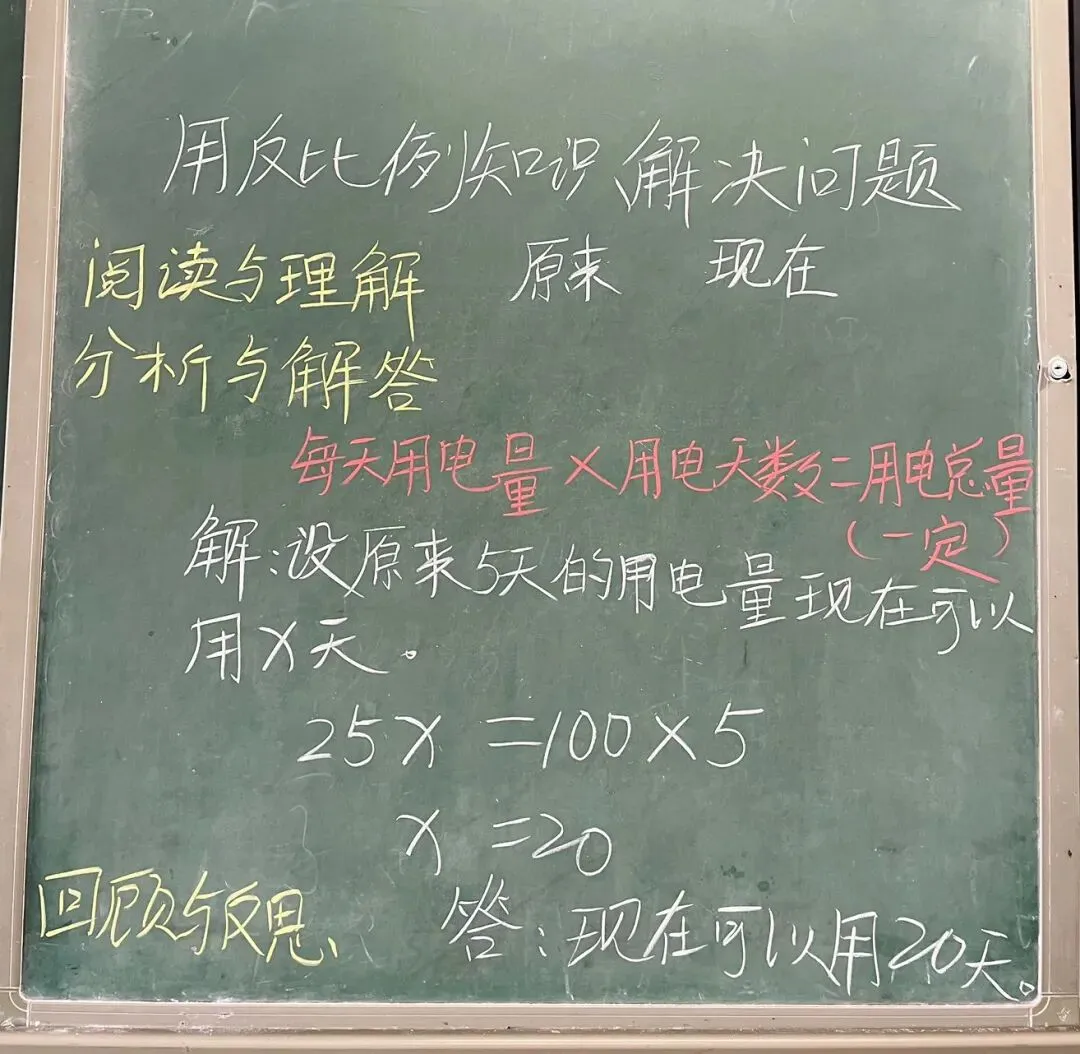 用反比例知识解决问题
阅读与理解 原来 现在
分析与解答
每天用电量×用电天数=用电总量
(一定)
解:设原来5天的用电量现在可以
用x天。
25x=100×5
x=20
回顾与反思
答:现在可以用20天。